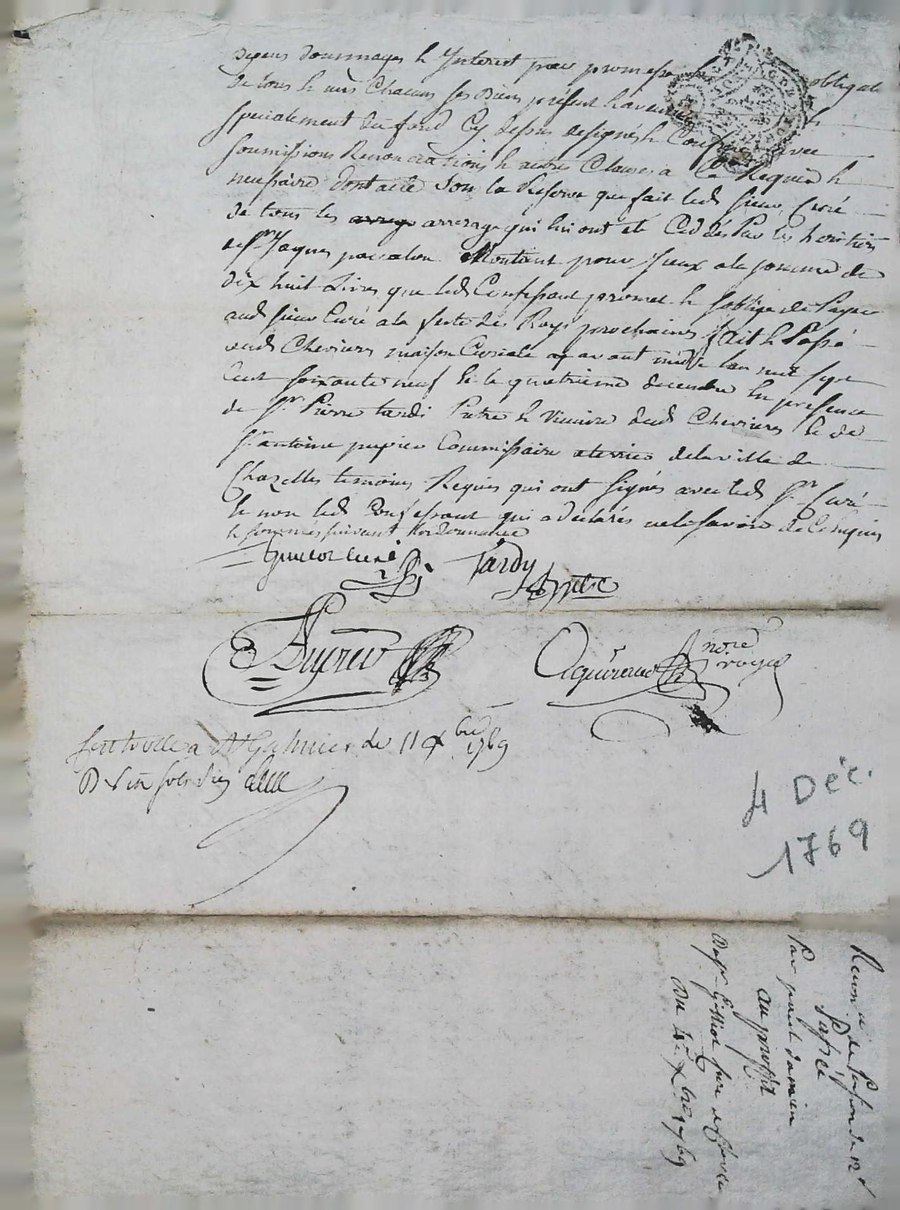 depens dommages & Interest pour promesse obligat
de tous & uns Chacuns ses biens présent & avenir
specialement du fond Cy dessus designés & Confiné avec
soumissions Renonciations & autres Clauses a Ce Requise &
necessaire dont acte sous la Reserve que fait led sieur Curé
de tous les arrerage qui lui ont eté Cedées Par les heritiers
de Sr Jaques pavalon Montant pour Iceux a la somme de
dix huit Livres que led Confessant promet & s'oblige de Payer
aud sieur Curé a la feste des Roys prochaines fait & Passé
aud Chevrieres maison Curiale avant midy lan mil sept
Cent soixante neuf & le quatrieme decembre En presence
de Sr Pierre tardi Pretre & Vicaire dud Chevrieres & de
Sr antoine Commissaire a terrier de la ville de
Chazelles temoins Requis qui ont Signés avec led Sr Curé
& non led Confessant qui a declarés ne le savoir de Ce Enquis
& sommé suivant lordonnance
curé Tardy Pretre
nore royal
a St Galmier le 11 Xbre 1769
4 Déc.
1769
de Pension de 12
Passée
Par
au proffit
de Sr curé de Chevrieres
Du 4e Xbre 1769